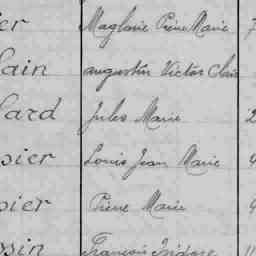 ier Magloire Pierre Marie 7
lain augustin Victor Clair
lard Jules Marie 2
sier Louis Jean Marie 4
sier Pierre Marie 4
ssin François Isidore 11